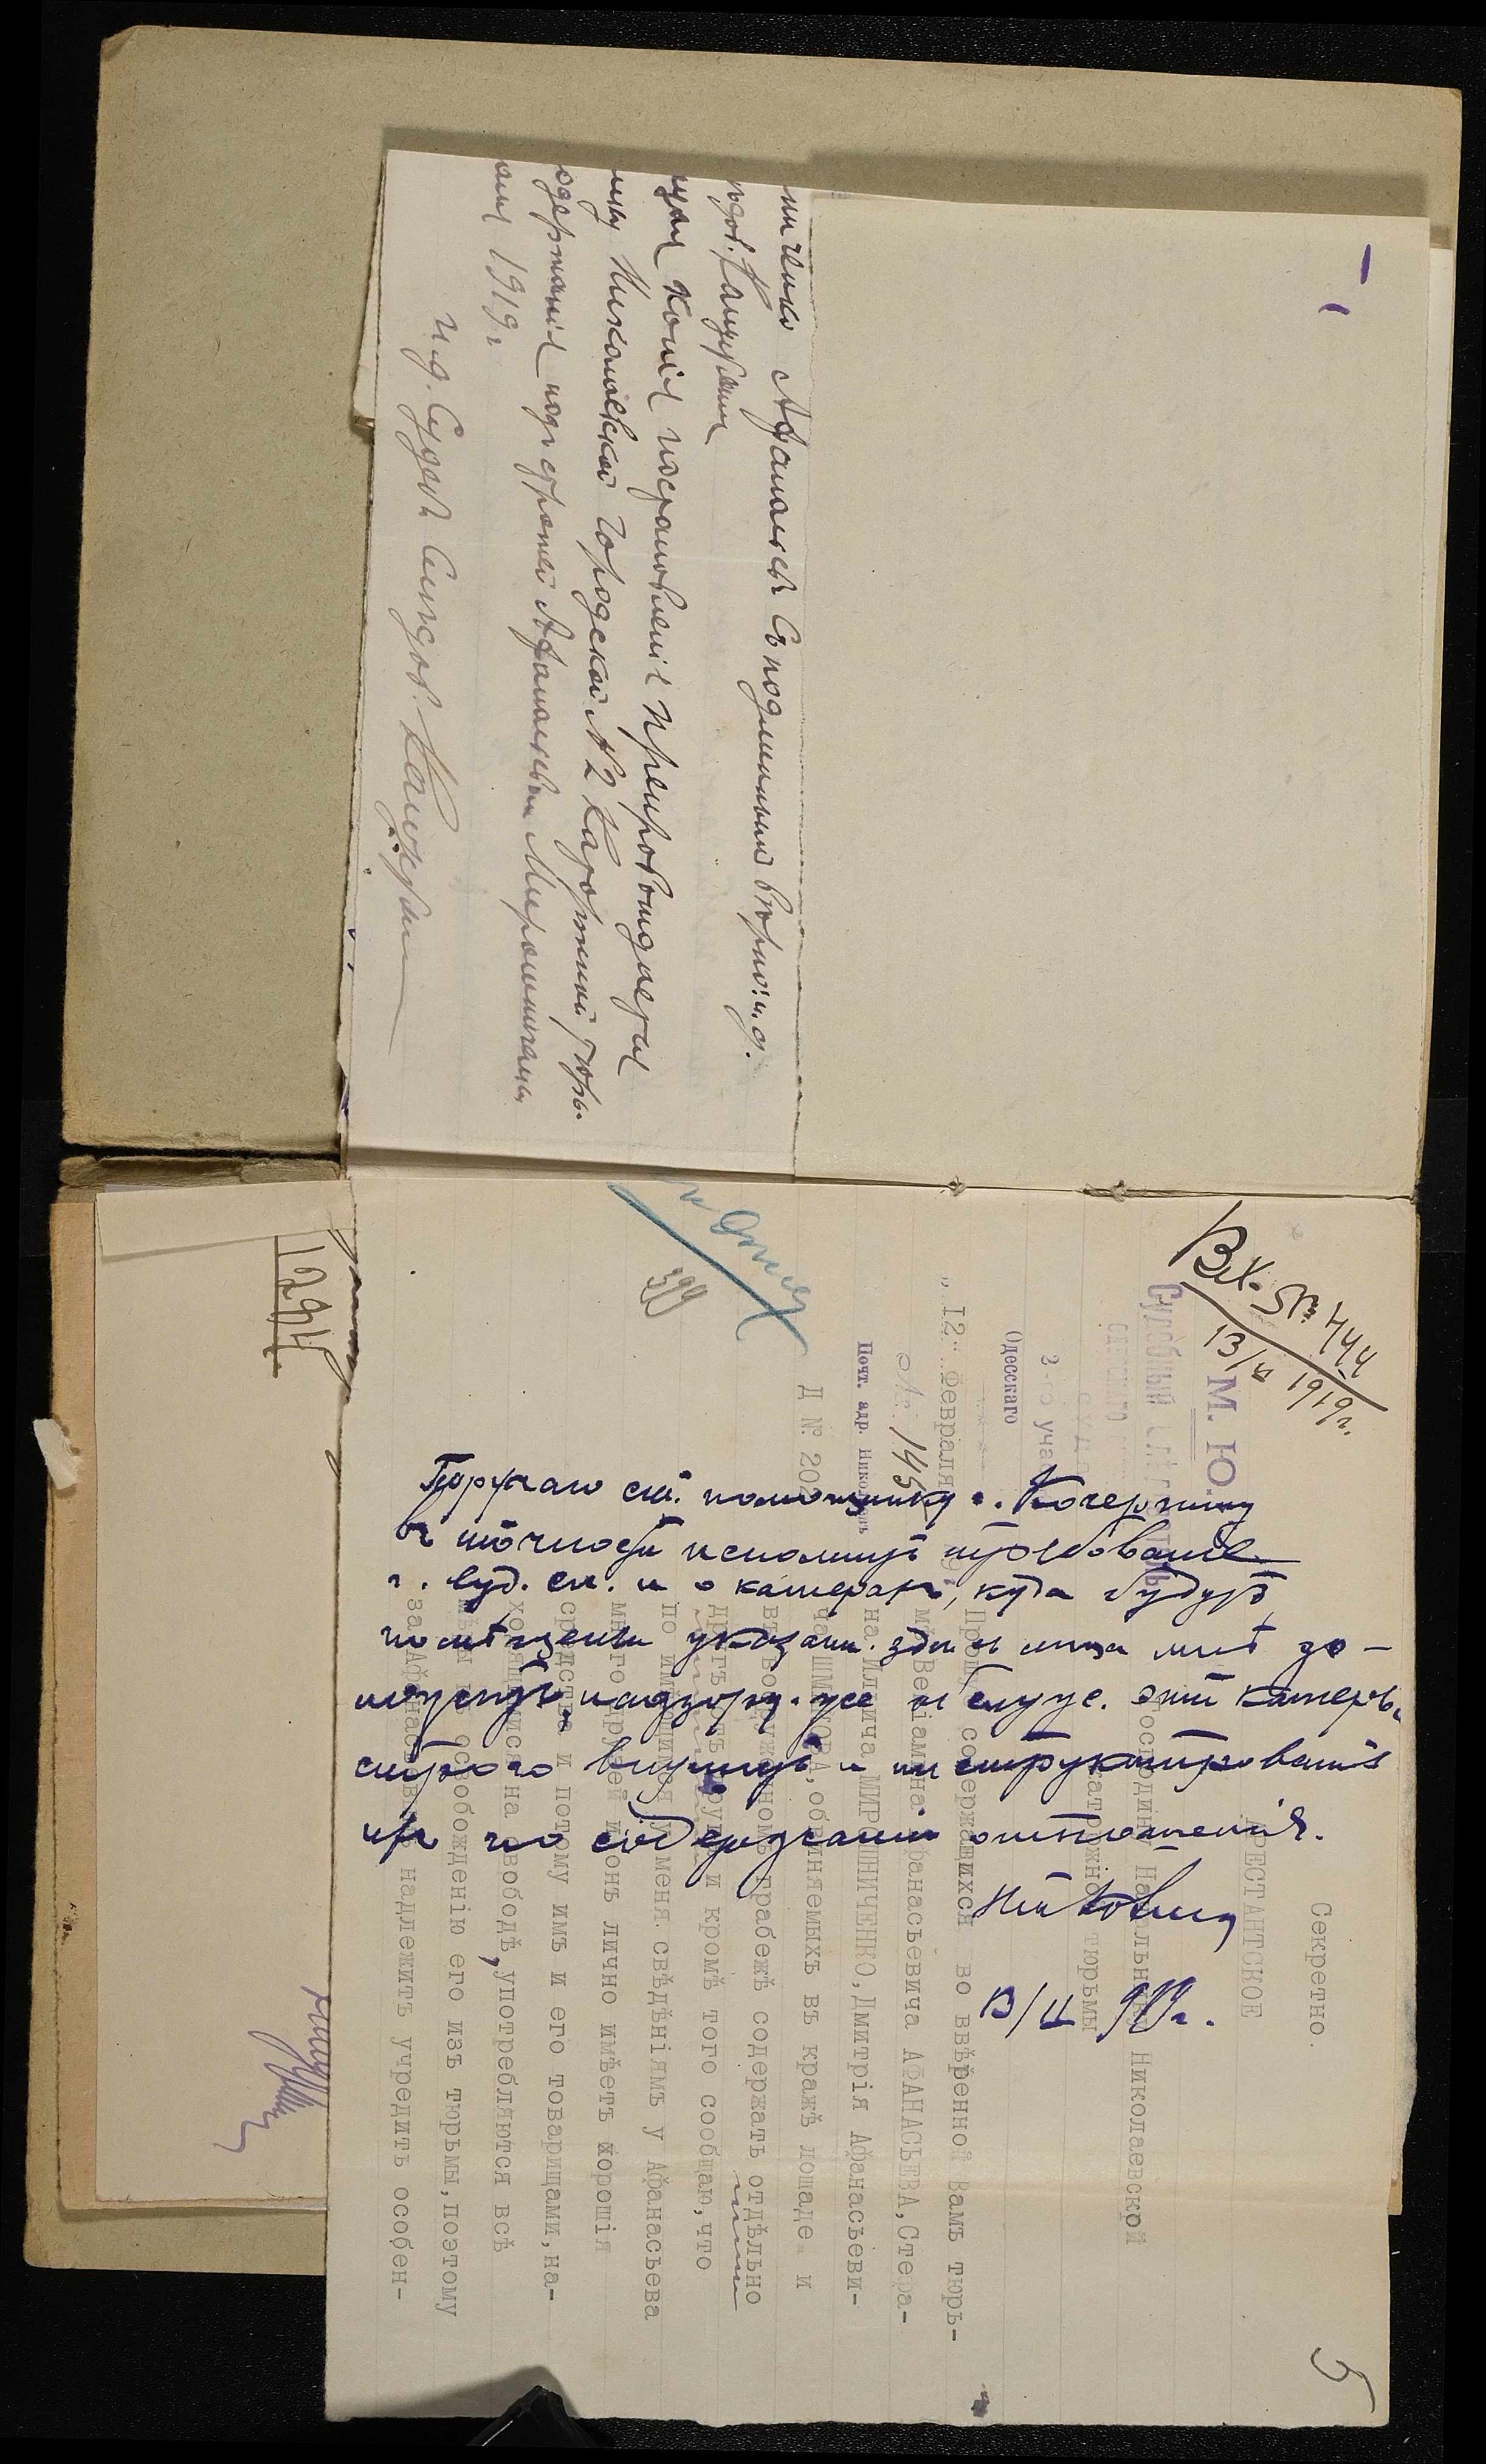 ниченко Афанасьев Съ подлиннымъ вѣрно: и. д.
копія постановленія препровождается
Николаевской городской № 2 Каторжной тюрь-
содержанія подъ стражей Афанасьева Мирошниченка
1919 г.
и. д. Судеб. Слѣдов.
Вх. № 444
13/II 1919 г.
М. Ю.
Судебный Слѣдователь
3-го учас
Одесскаго
„12" февраля
№ 145
Почт. адр. Николаевъ
Д № 202
399
Секретно.
АРЕСТАНТСКОЕ
Господину Начальнику Николаевской
каторжной тюрьмы
Прошу содержащихся во ввѣренной Вамъ тюрь-
мѣ Веніамина Афанасьевича АФАНАСЬЕВА, Стера-
на Ильича МИРОШНИЧЕНКО, Дмитрія Афанасьеви-
ча ШМАТОВА, обвиняемыхъ въ кражѣ лошадей и
въ вооруженномъ грабежѣ содержать отдѣльно
другъ отъ друга и кромѣ того сообщаю, что
по имѣющимся у меня свѣдѣніямъ у Афанасьева
много друзей и онъ лично имѣетъ хорошія
средства и потому имъ и его товарищами, на-
ходящимися на свободѣ, употребляются всѣ
мѣры къ освобожденію его изъ тюрьмы, поэтому
за Афанасьевымъ надлежитъ учредить особен-
Поручаю ст. помощнику г. Кочержину
въ точности исполнить требованіе
г. Суд. сл. и о камерахъ, куда будутъ
помѣщены указан. здѣсь лица мнѣ до-
надзору
строго внушить и инструктировать
ихъ по содержанію отношенія.
13/II 919 г.
5
1294